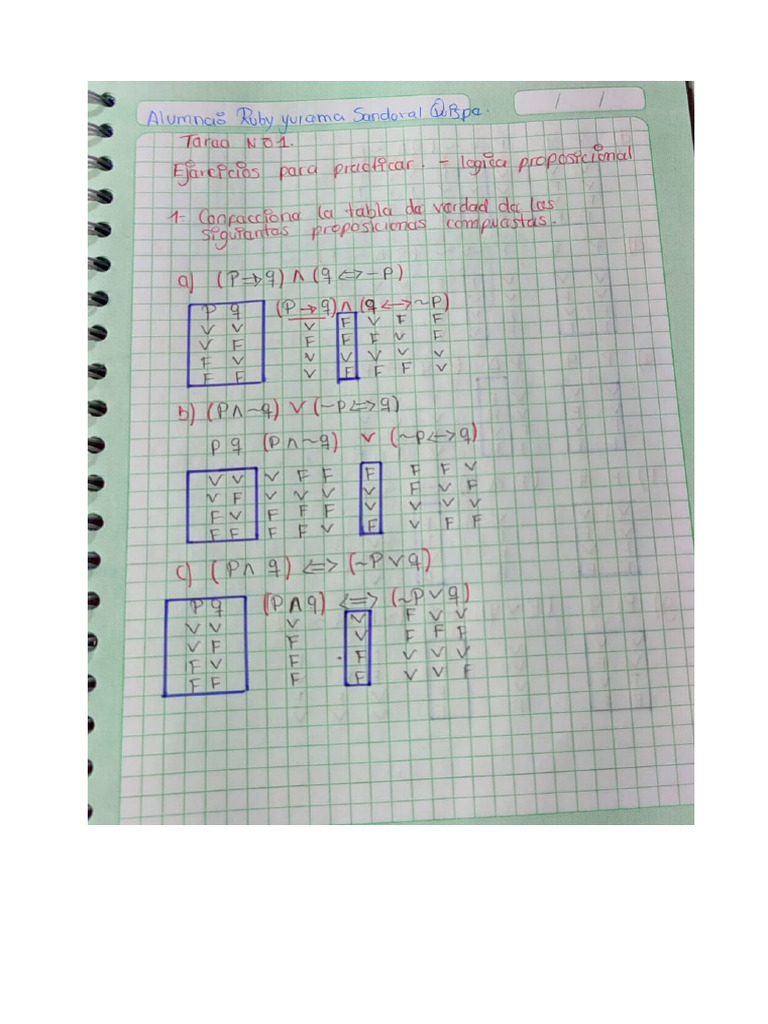 Alumnao Ruby yurama Sandoval Qispe.
/ /
Tarea NO1.
Ejercicios para practicar. - logica proposicional
1- Confacciona la tabla de verdad de las
siguientes proposiciones compuestas.
a) (P→q) ∧ (q⇔-P)
P q (P→q) ∧ (q↔~P)
V V V F V F F
V F F F F V F
F V V V V V V
F F V F F F V
b) (P∧~q) ∨ (~P⇔q)
P q (P∧~q) ∨ (~P⇔q)
V V V F F F F F V
V F V V V V F V F
F V F F F V V V V
F F F F V F V F F
c) (P∧q) ⇔ (~P∨q)
P q (P∧q) ⇔ (~P∨q)
V V V V F V V
V F F V F F F
F V F F V V V
F F F F V V F